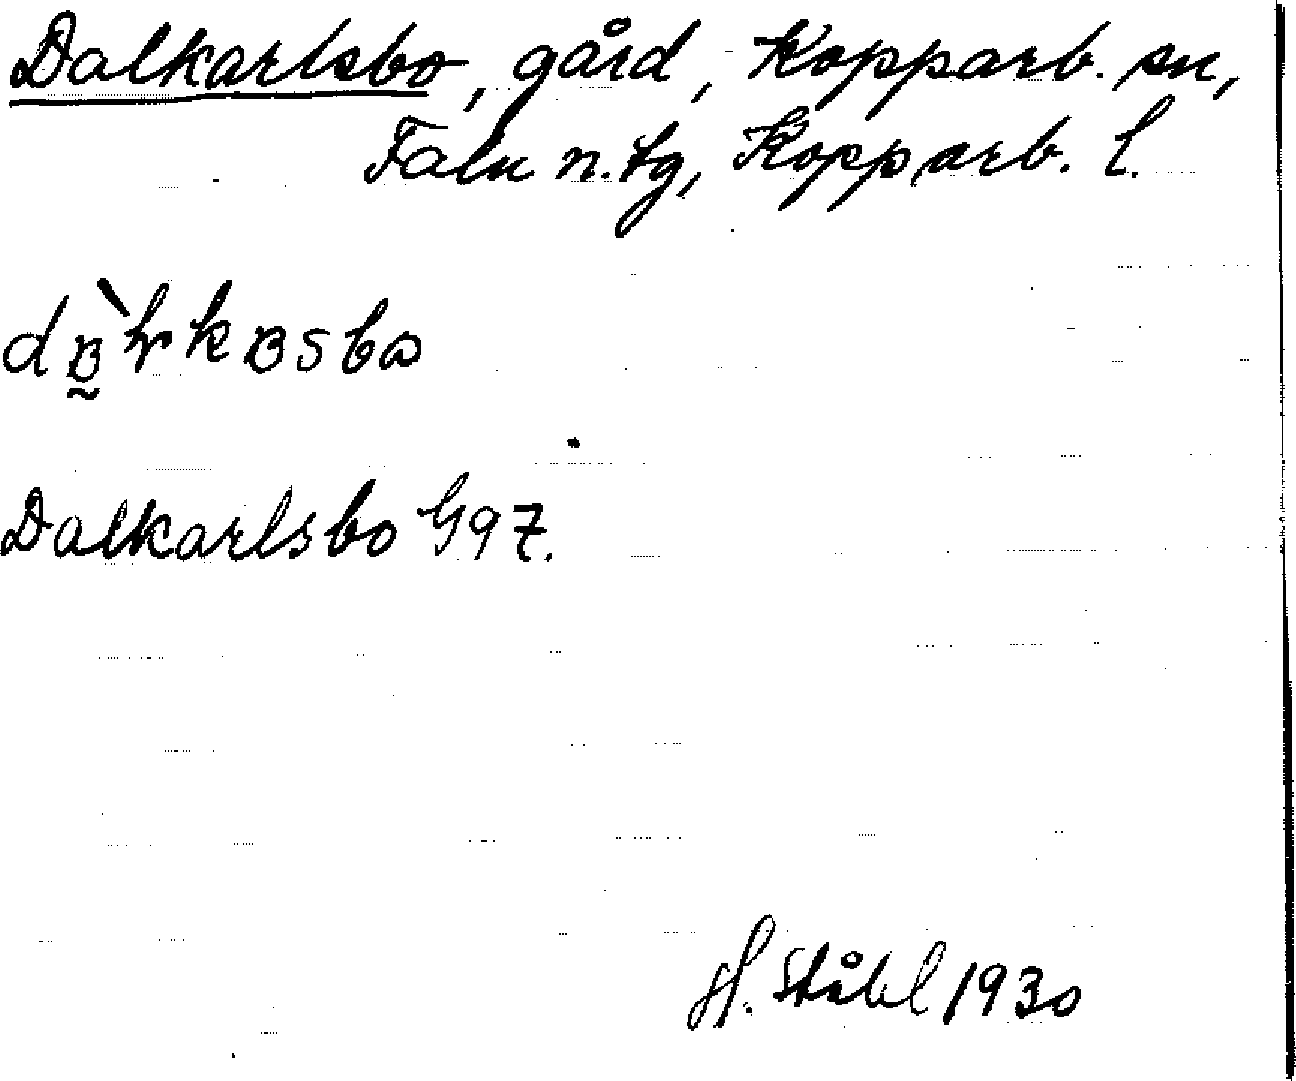 Dalkarlsbo, gård, Kopparb. sn,
Falu n. tg, Kopparb. l.
Dalkarlsbo G97.
H. Ståhl 1930